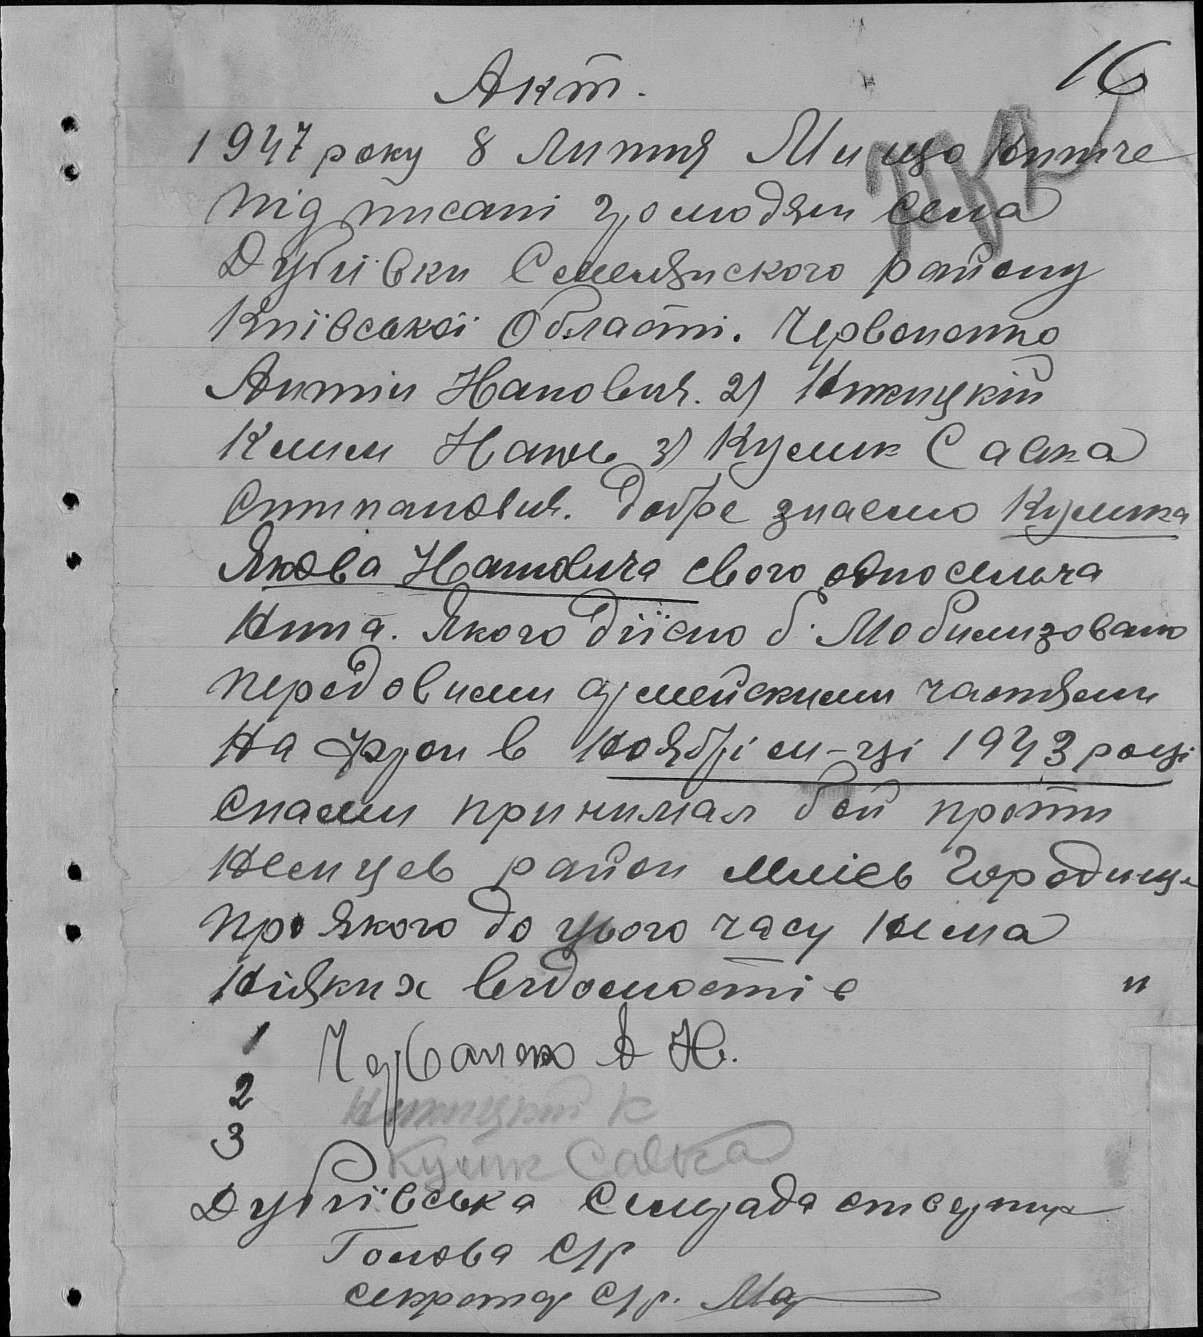 16
Акт.
1947 року 8 Липня Ми що нижче
підписані громодяни села
Дубіївки Смелянского району
Київської Області. Червоненко
Антін
Клим 3) Кулик Савка
Степанович. добре знаємо Кулика
Якова свого односельча
нина. Якого дійсно б. Мобилизовано
передовими армейскими частями
На фрон в Ноябрі м-ці 1943 році
снами принимал бой проти
Немцев район Мліев Городище
про якого до цього часу Нема
Ніяких ведомостів
1 Червоненко А Н.
2 К
3 Кулик Савка
Дубіївська Сельрада ствержує
Голова С/р
секретар С/р.